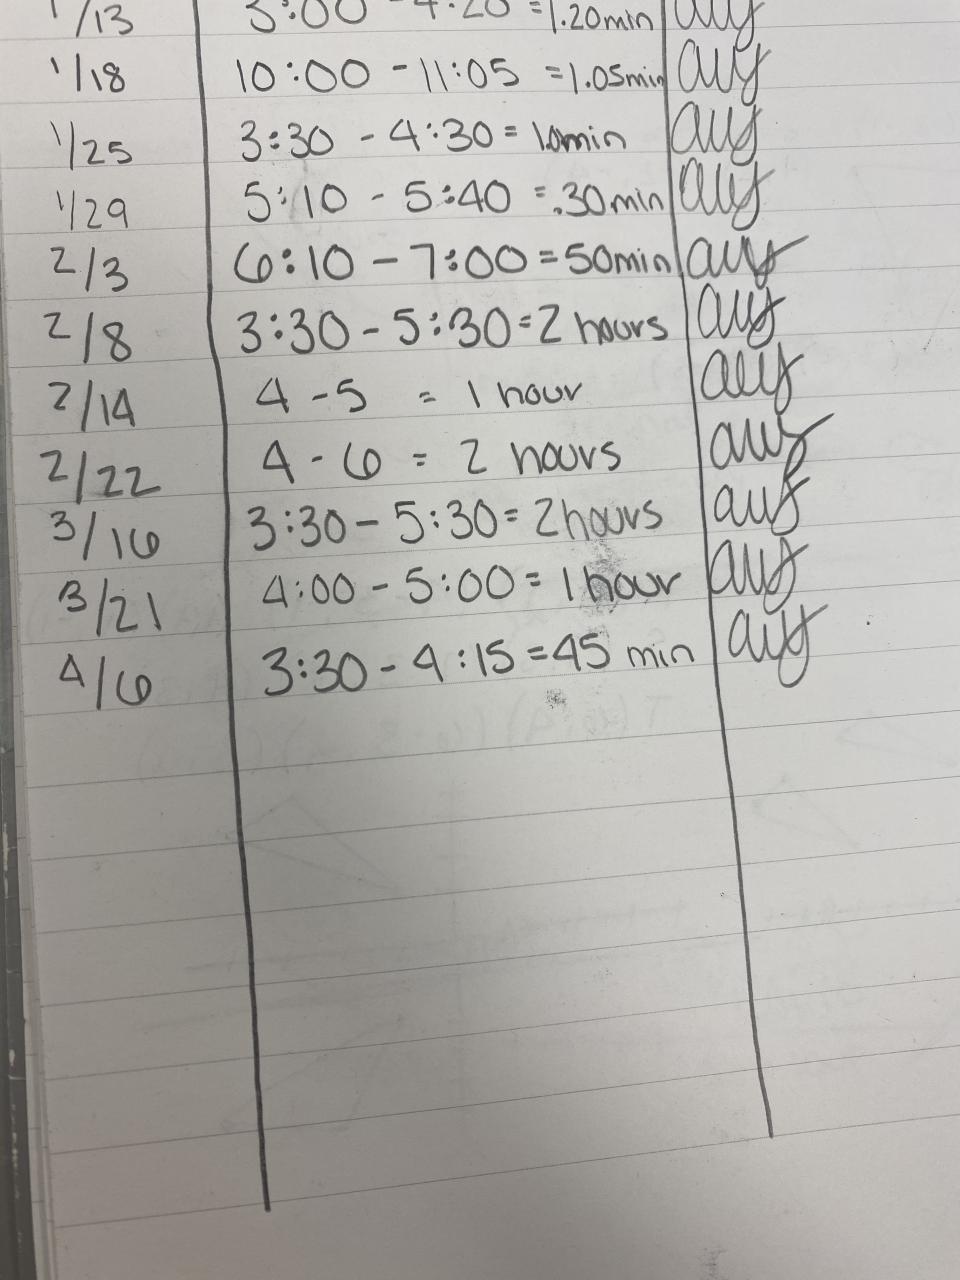 1/13 3:00 - 4:20 = 1.20min
1/18 10:00 - 11:05 = 1.05min
1/25 3:30 - 4:30 = 1.0min
1/29 5:10 - 5:40 = .30min
2/3 6:10 - 7:00 = 50min
2/8 3:30 - 5:30 = 2 hours
2/14 4 - 5 = 1 hour
2/22 4 - 6 = 2 hours
3/16 3:30 - 5:30 = 2 hours
3/21 4:00 - 5:00 = 1 hour
4/6 3:30 - 4:15 = 45 min